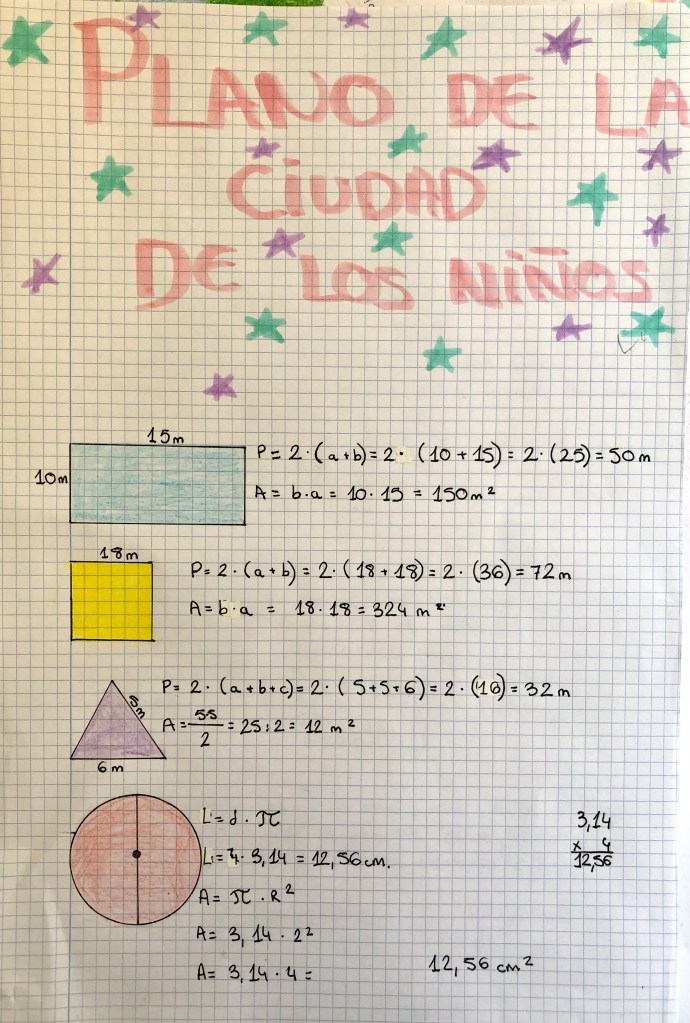 PLANO DE LA
CIUDAD
DE LOS NIÑOS
15m
10m
P = 2 · (a + b) = 2 · (10 + 15) = 2 · (25) = 50 m
A = b · a = 10 · 15 = 150 m²
18 m
P = 2 · (a + b) = 2 · (18 + 18) = 2 · (36) = 72 m
A = b · a = 18 · 18 = 324 m²
5m
6 m
P = 2 · (a + b + c) = 2 · (5 + 5 + 6) = 2 · (16) = 32 m
A = 5·5/2 = 25 : 2 = 12 m²
L = d · π
L = 4 · 3,14 = 12,56 cm.
A = π · R²
A = 3,14 · 2²
A = 3,14 · 4 = 12,56 cm²
3,14
x 4
12,56